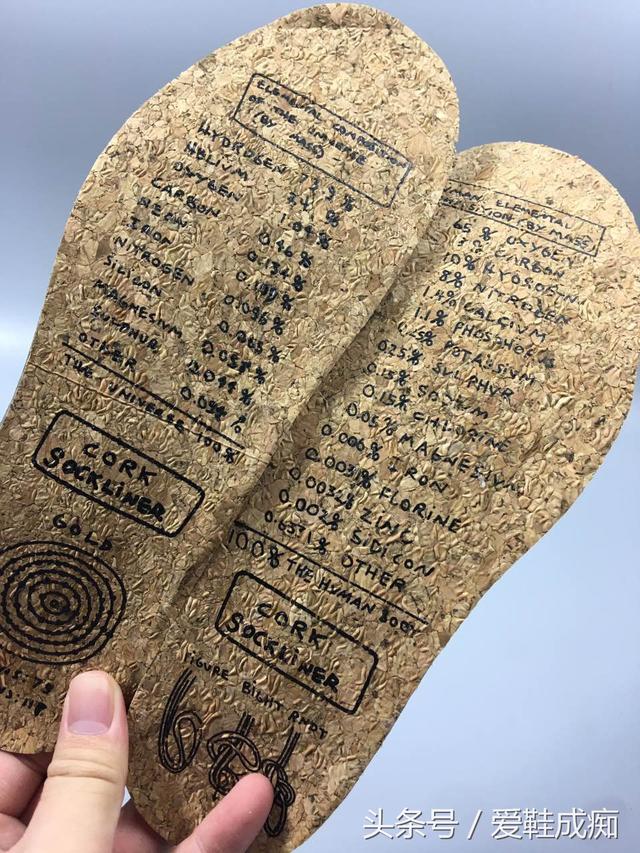 ELEMENTAL COMPOSITION
OF THE UNIVERSE
(BY MASS)
HYDROGEN 73.9%
HELIUM 24%
OXYGEN
CARBON 0.46%
NEON 0.134%
IRON
NITROGEN 0.096%
SILICON 0.065%
MAGNESIUM 0.058%
SULPHUR 0.044%
OTHER
THE UNIVERSE 100%
CORK
SOCKLINER
GOLD
HUMAN ELEMENTAL
BY MASS
65% OXYGEN
CARBON
10% HYDROGEN
3% NITROGEN
1.4% CALCIUM
1.1% PHOSPHOL
0.25% POTASSIUM
0.25% SULPHYR
0.15% SODIUM
0.15% CHLORINE
0.05% MAGNESIUM
0.006% IRON
0.0037% FLORINE
0.0032% ZINC
0.002% SIDICON
0.6571% OTHER
100% THE HUMAN BODY
CORK
SOCKLINER
FIGURE EIGHT KNOT
头条号 / 爱鞋成痴